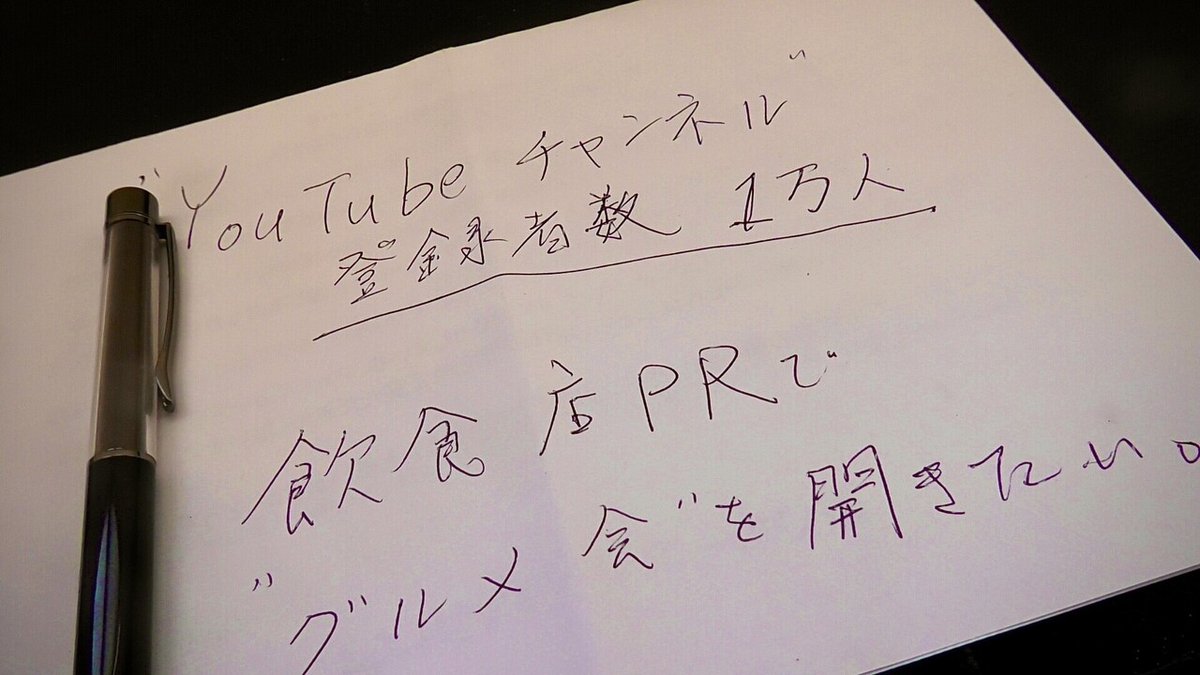 "YouTubeチャンネル"
登録者数 1万人
飲食店PRで
"グルメ会"を開きたい。